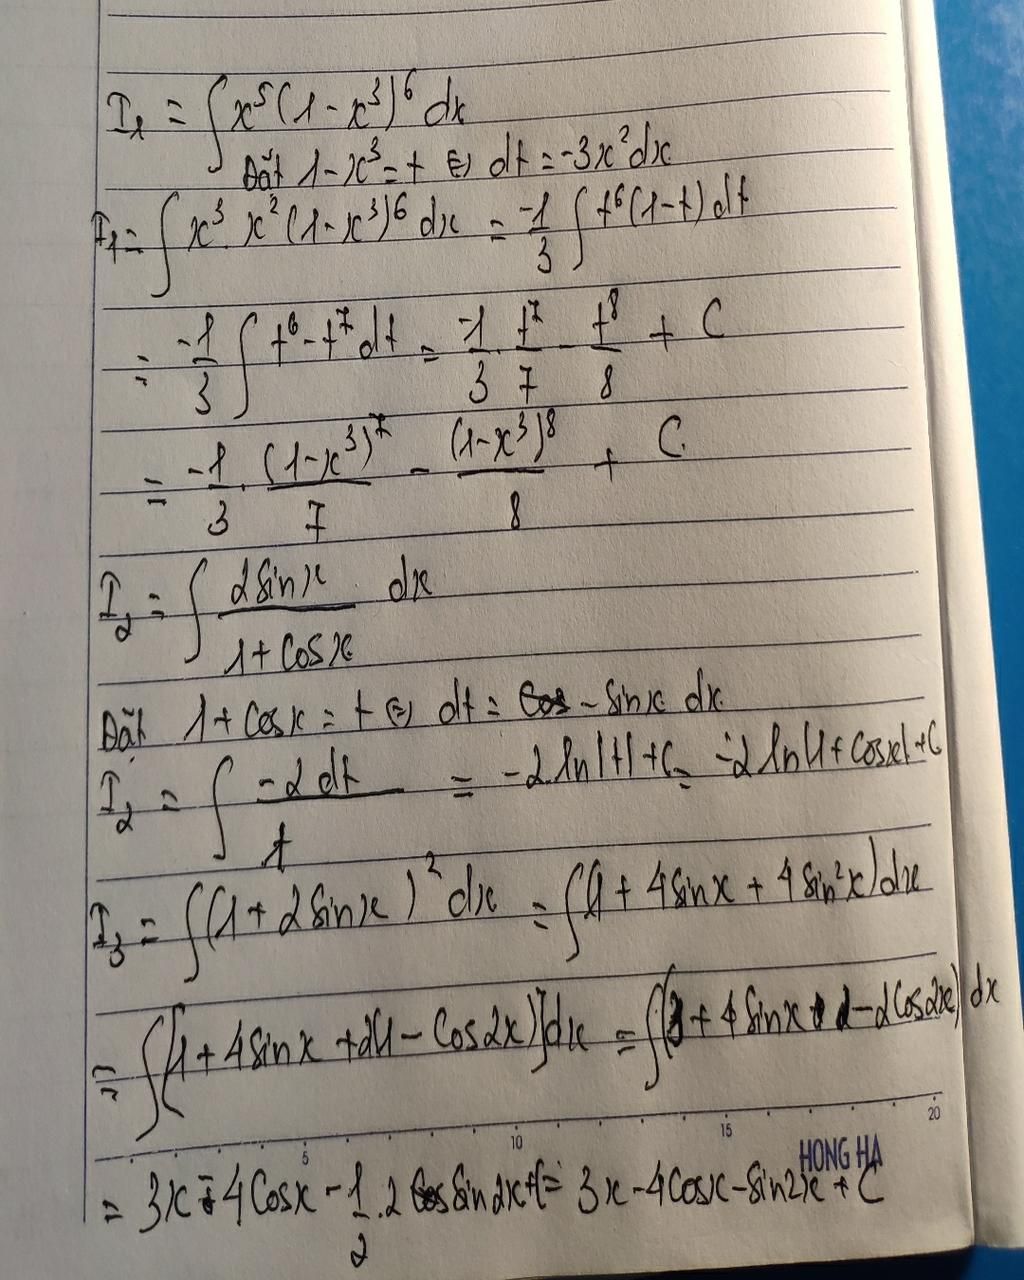 I₁ = ∫ x⁵(1-x³)⁶ dx
Đặt 1-x³ = t ⇔ dt = -3x² dx
I₁ = ∫ x³ . x² (1-x³)⁶ dx = -1/3 ∫ t⁶(1-t) dt
= -1/3 ∫ t⁶ - t⁷ dt = -1/3 . t⁷/7 - t⁸/8 + C
= -1/3 . (1-x³)⁷/7 - (1-x³)⁸/8 + C.
I₂ = ∫ 2sinx/(1+cosx) dx
Đặt 1+cosx = t ⇔ dt = - sinx dx
I₂ = ∫ -2dt/t = -2.ln|t| + C = -2 ln|1+cosx| + C
I₃ = ∫(1+2sinx)² dx = ∫(1 + 4sinx + 4sin²x)dx
= ∫[1+4sinx+2(1-cos2x)]dx = ∫(3+4sinx - 2cos2x) dx
5 10 15 20
HONG HA
= 3x - 4cosx - 1/2 . 2 sin2x + C = 3x - 4cosx - sin2x + C